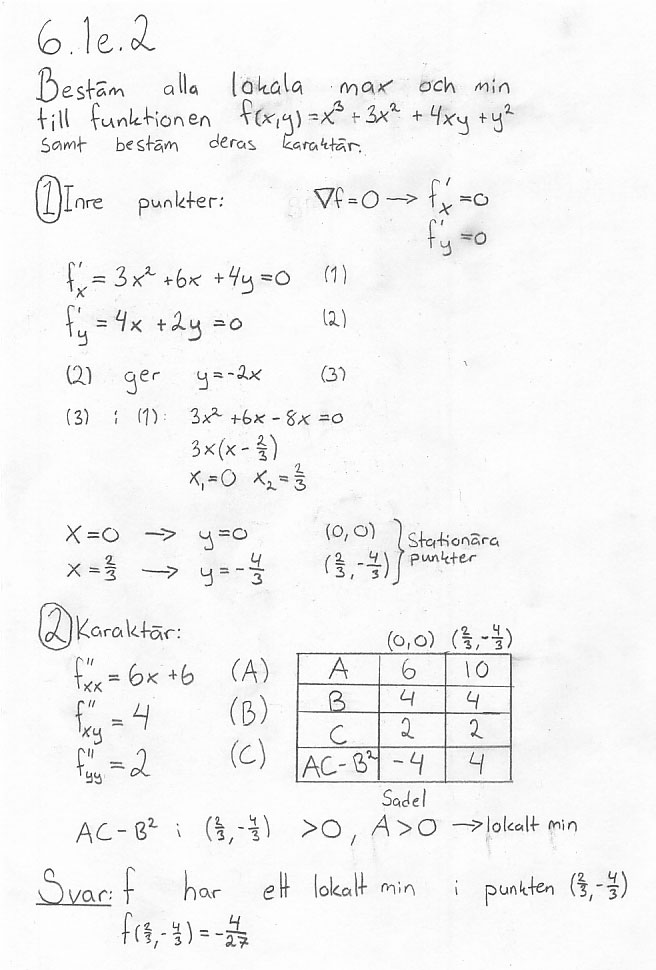 6.1e.2
Bestäm alla lokala max och min
till funktionen f(x,y) = x³ + 3x² + 4xy + y²
samt bestäm deras karaktär.
① Inre punkter: ∇f = 0 → f'x = 0
f'y = 0
f'x = 3x² + 6x + 4y = 0 (1)
f'y = 4x + 2y = 0 (2)
(2) ger y = -2x (3)
(3) i (1): 3x² + 6x - 8x = 0
3x(x - 2/3)
x₁ = 0 x₂ = 2/3
x = 0 → y = 0 (0,0)
x = 2/3 → y = -4/3 (2/3, -4/3)
} Stationära
punkter
② Karaktär:
f''xx = 6x + 6 (A)
f''xy = 4 (B)
f''yy = 2 (C)
(0,0) (2/3, -4/3)
A 6 10
B 4 4
C 2 2
AC-B² -4 4
Sadel
AC-B² i (2/3, -4/3) > 0, A > 0 → lokalt min
Svar: f har ett lokalt min i punkten (2/3, -4/3)
f(2/3, -4/3) = -4/27